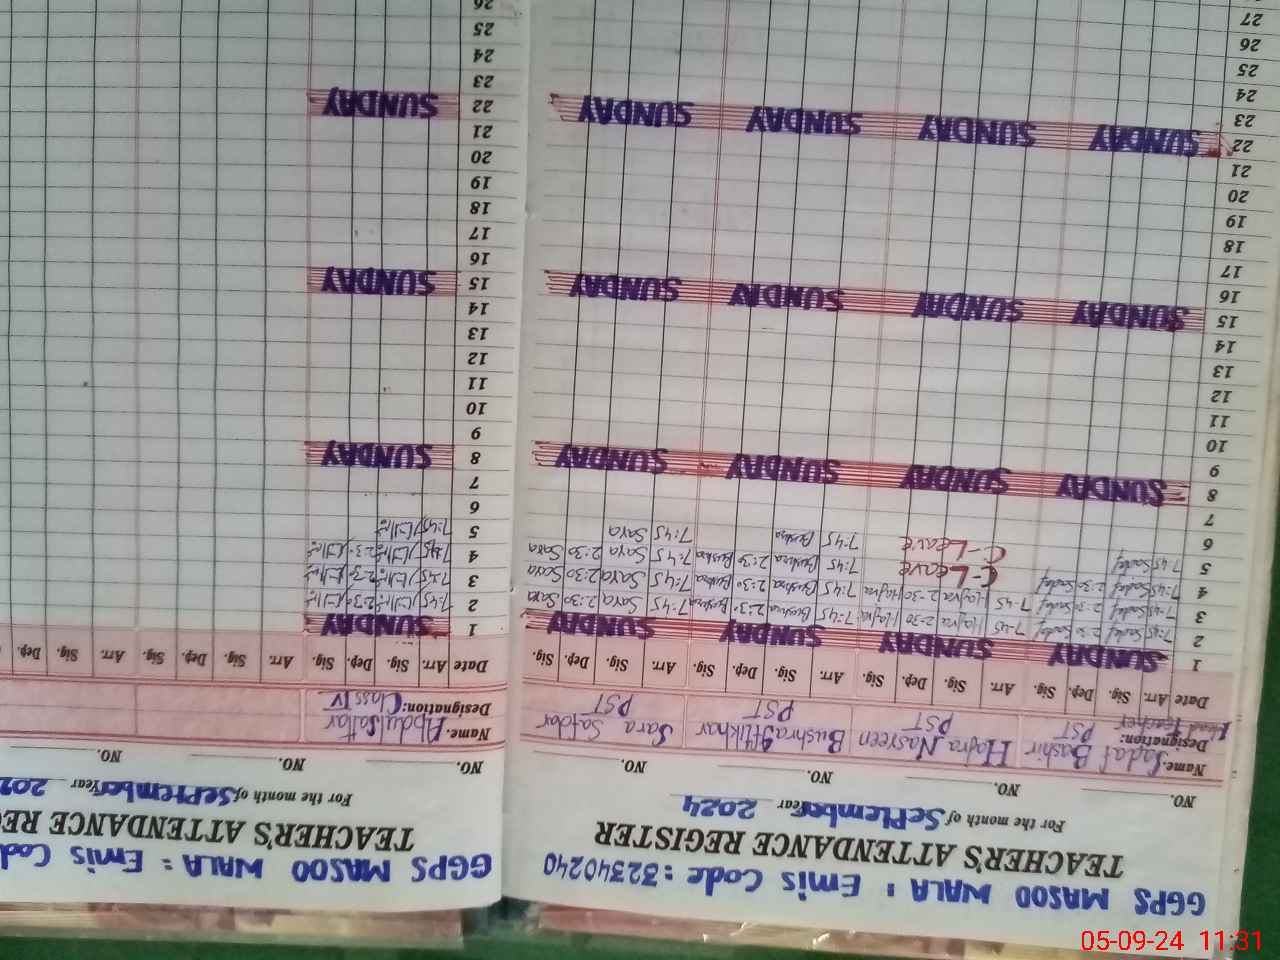 GGPS MASOO WALA : Emis Code : 32340240
TEACHER'S ATTENDANCE REGISTER
For the month of September Year 2024
NO. NO. NO. NO.
Name. Sadaf Bashir Hajra Nasreen Bushra Iftikhar Sara Safdar
Designation: PST PST PST PST
Head Teacher
Date Arr. Sig. Dep. Sig. Arr. Sig. Dep. Sig. Arr. Sig. Dep. Sig. Arr. Sig. Dep. Sig.
1 SUNDAY SUNDAY SUNDAY SUNDAY
2 7:45 Sadaf 2:30 Sadaf 7:45 Hajra 2:30 Hajra 7:45 Bushra 2:30 Bushra 7:45 Sara 2:30 Sara
3 7:45 Sadaf 2:30 Sadaf 7:45 Hajra 2:30 Hajra 7:45 Bushra 2:30 Bushra 7:45 Sara 2:30 Sara
4 7:45 Sadaf 2:30 Sadaf C-Leave 7:45 Bushra 2:30 Bushra 7:45 Sara 2:30 Sara
5 7:45 Sadaf C-Leave 7:45 Bushra 7:45 Sara
6
7
8 SUNDAY SUNDAY SUNDAY SUNDAY
9
10
11
12
13
14
15 SUNDAY SUNDAY SUNDAY SUNDAY
16
17
18
19
20
21
22 SUNDAY SUNDAY SUNDAY SUNDAY
23
24
25
26
27
GGPS MASOO WALA : Emis Cod
TEACHER'S ATTENDANCE RE
For the month of September Year 202
NO. NO. NO.
Name. Abdul Sattar
Designation: Class IV
Date Arr. Sig. Dep. Sig. Arr. Sig. Dep. Sig. Arr. Sig. Dep.
1 SUNDAY
2 7:45 2:30
3 7:45 2:30
4 7:45 2:30
5 7:45
6
7
8 SUNDAY
9
10
11
12
13
14
15 SUNDAY
16
17
18
19
20
21
22 SUNDAY
23
24
25
26
05-09-24 11:31